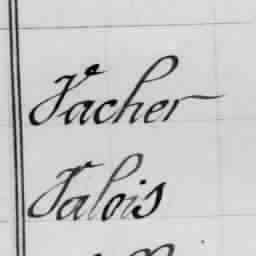 Vacher
Valois